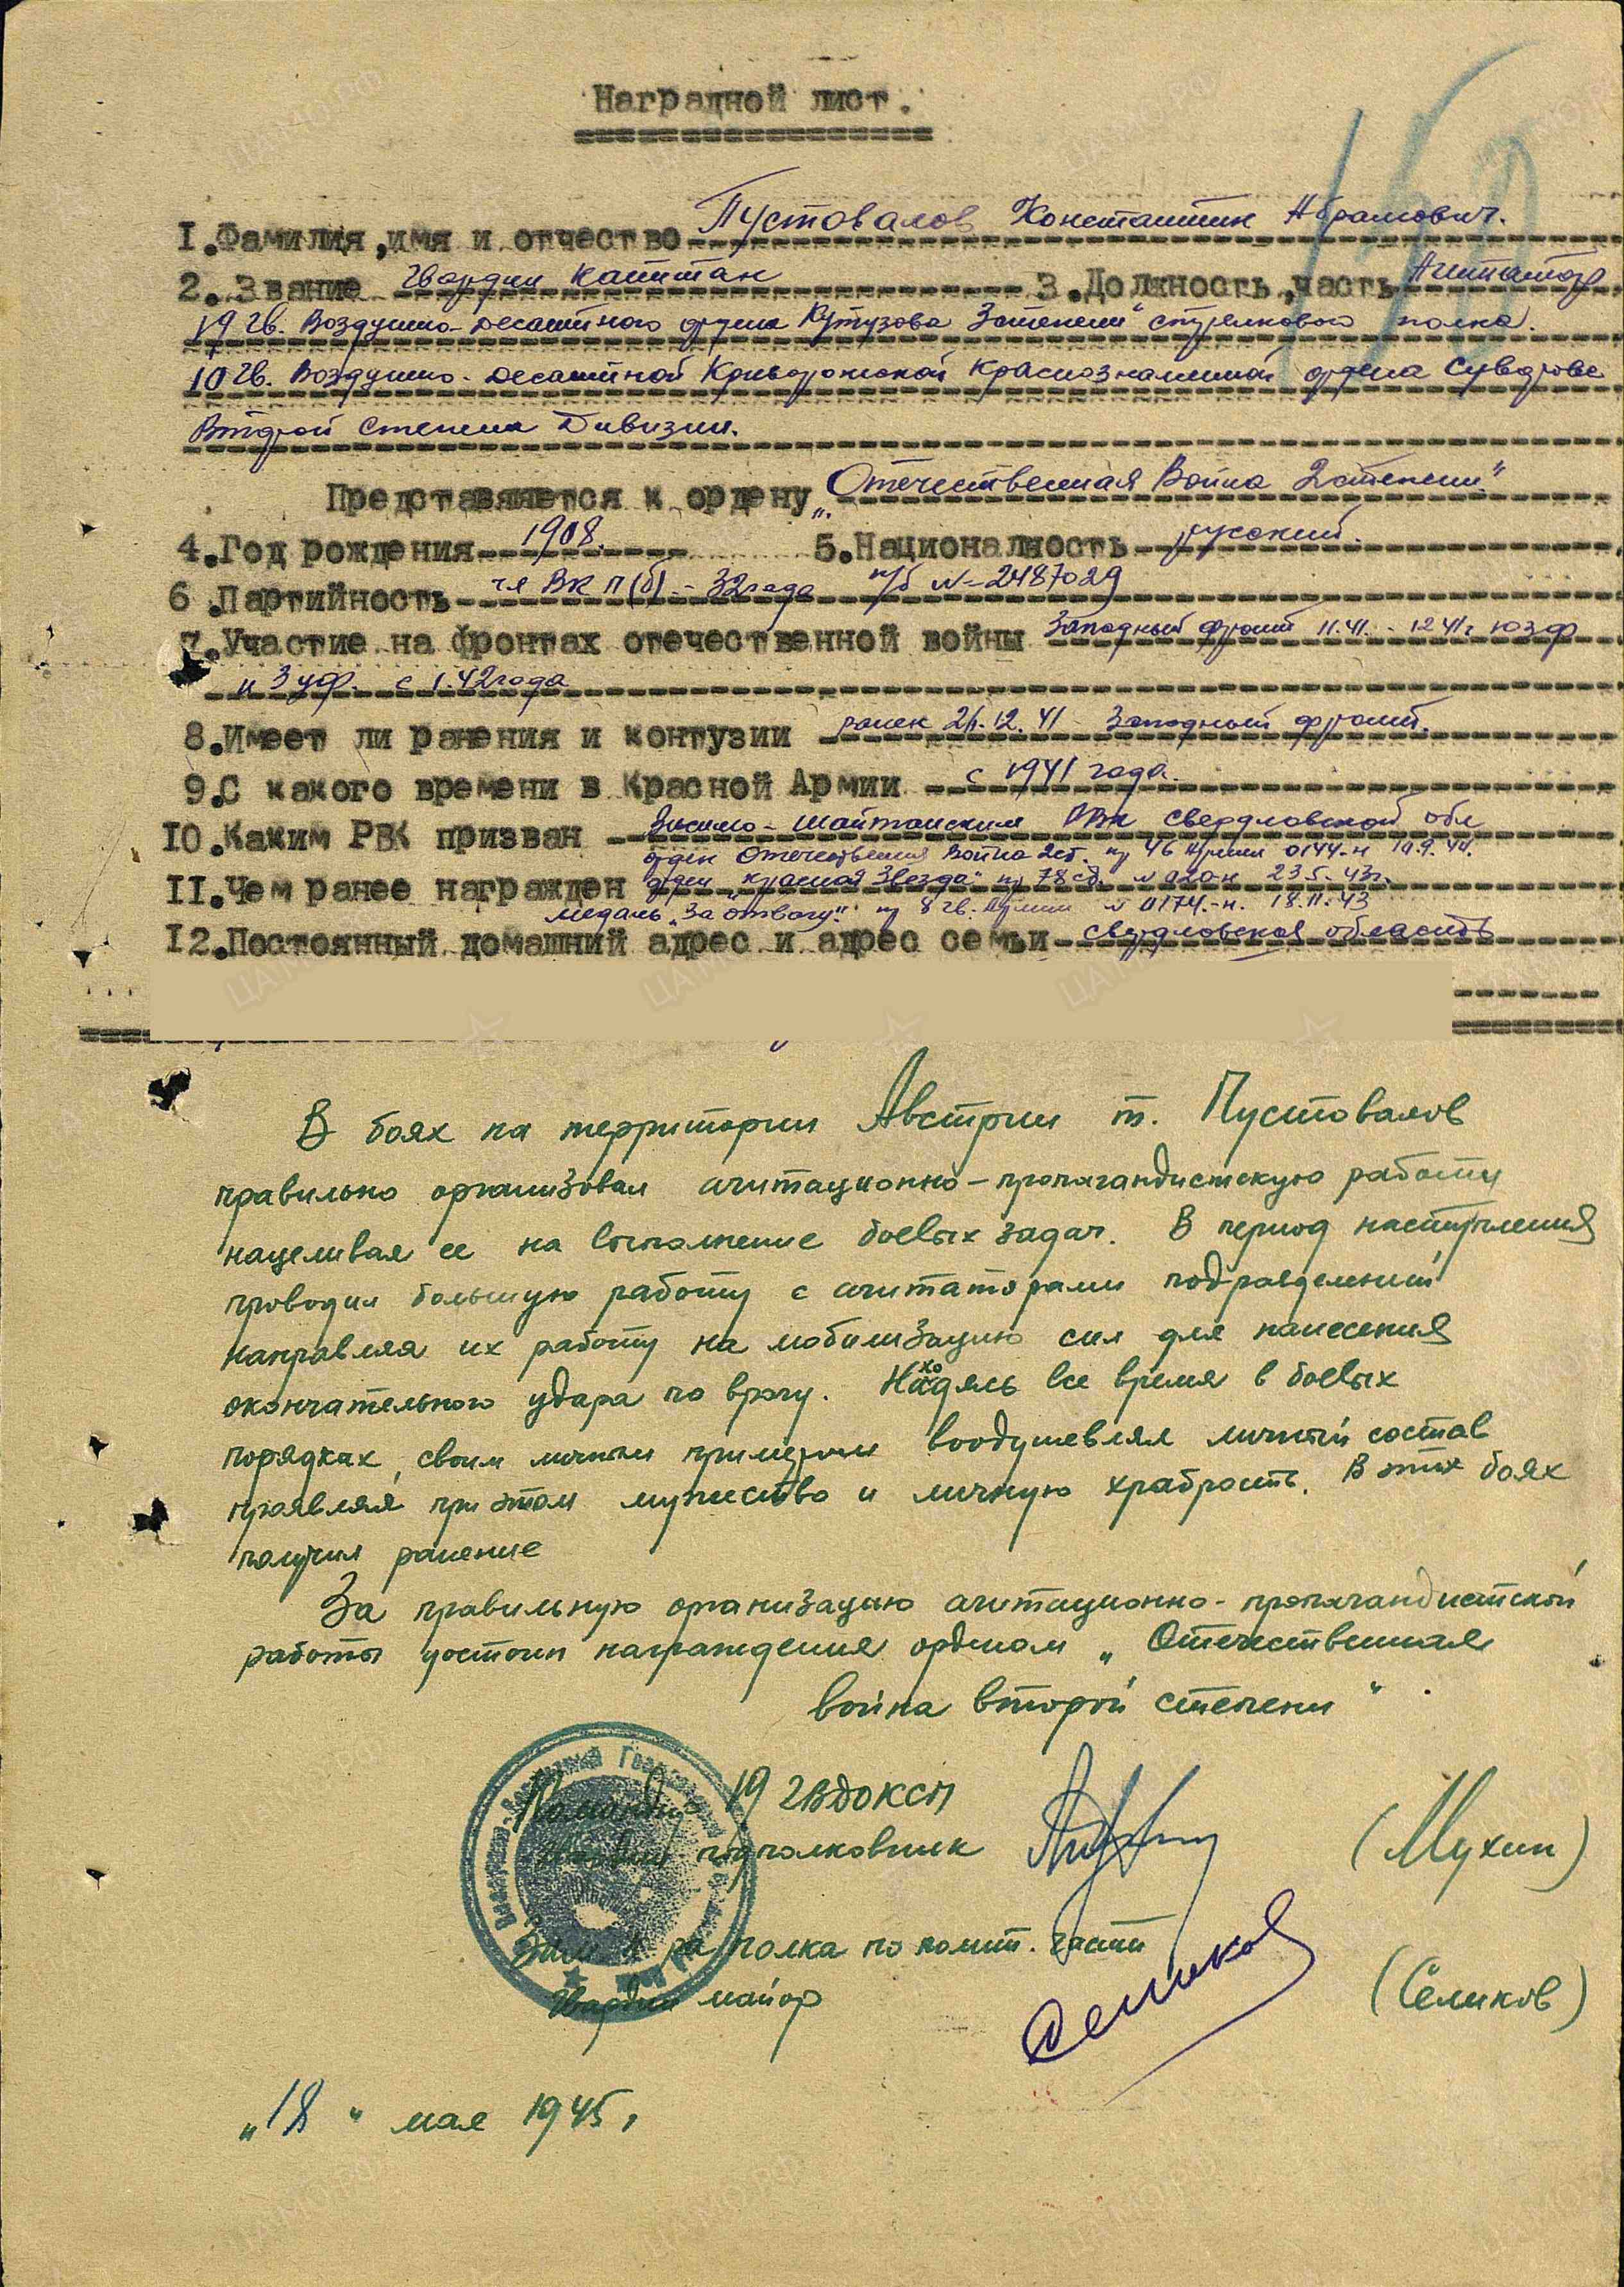 Наградной лист.
1.Фамилия,имя и отчество Пустовалов Константин Абрамович.
2. Звание Гвардии капитан 3.Должность,часть Агитатор
19 гв. Воздушно-десантного ордена Кутузова 3 степени" стрелкового полка.
10 гв. Воздушно-десантной Криворожской Краснознаменной ордена Суворова
Второй степени Дивизии.
Представляется к ордену „Отечественная Война 2 степени"
4.Год рождения 1908. 5.Националность русский.
6.Партийность чл ВКП(б) - 32 года п/б №-2487029
7.Участие на фронтах отечественной войны Западный фронт 11.41. - 12 41г ЮЗФ
и 3 уф. с 1.42 года
8.Имеет ли ранения и контузии ранен 21.12.41 - Западный фронт.
9.С какого времени в Красной Армии с 1941 года.
10.Каким РВК призван Висимо-Шайтанским РВК Свердловской обл
орден Отечественная Война 2ст. пр 46 Армии 0144-н 19.9.44.
11.Чем ранее награжден орден „Красная Звезда" пр 78 ск. № 020-н 23.5.43г.
медаль „За отвагу". пр 8 гв. Армии № 0174.-н. 18.11.43
12.Постоянный домашний адрес и адрес семьи Свердловская область
В боях на территории Австрии т. Пустовалов
правильно организовал агитационно-пропагандистскую работу
нацеливая ее на выполнение боевых задач. В период наступления
проводил большую работу с агитаторами подразделений
направляя их работу на мобилизацию сил для нанесения
окончательного удара по врагу. Находясь все время в боевых
порядках, своим личным примером воодушевлял личный состав
проявляя при этом мужество и личную храбрость. В этих боях
получил ранение
За правильную организацию агитационно-пропагандистской
работы достоин награждения орденом „Отечественная
война второй степени".
Командир 19 гвдоксп
Гвардии подполковник (Мухин)
Зам к-ра полка по полит. части
Гвардии майор Семиков (Семиков)
„18" мая 1945г.